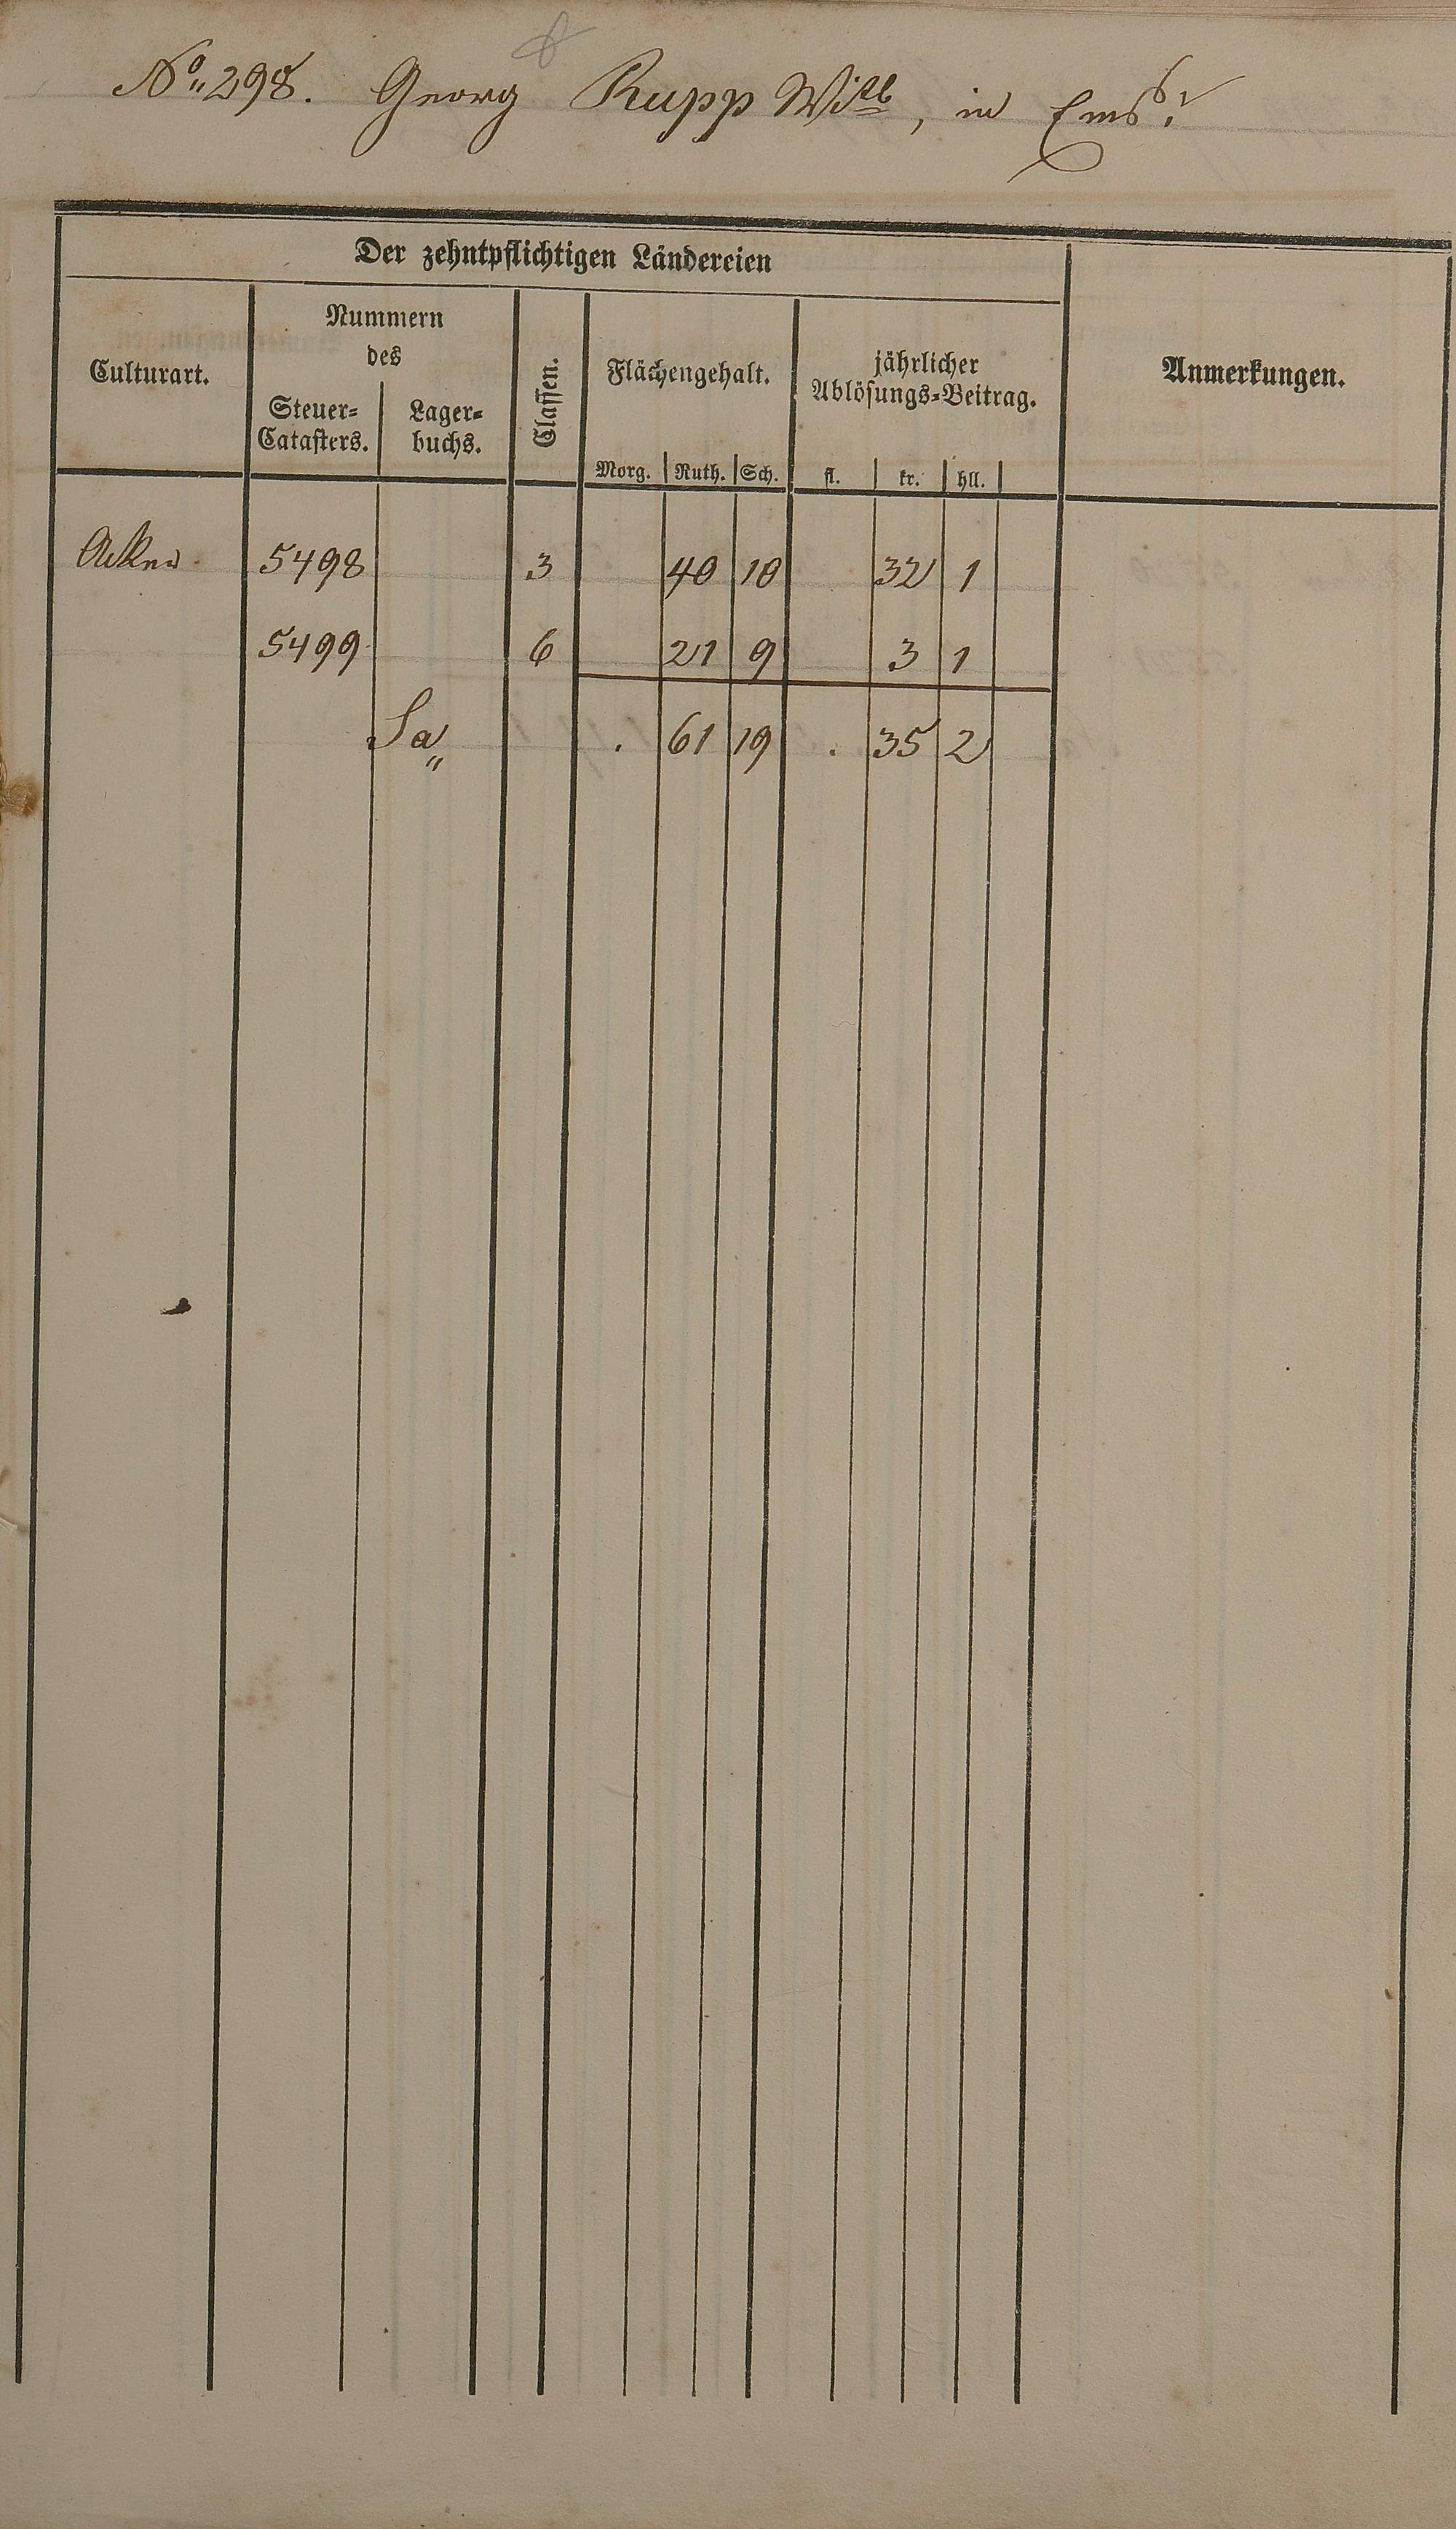 No. 298. Georg Rupp Wittb, in Ems.
Der zehntpflichtigen Ländereien
Culturart.
Nummern
des
Steuer-
Catasters.
Lager-
buchs.
Classen.
Flächengehalt.
Morg. Ruth. Sch.
jährlicher
Ablösungs-Beitrag.
fl. kr. hll.
Anmerkungen.
Acker 5498 3 40 10 32 1
5499 6 21 9 3 1
Sa . 61 19 . 35 2